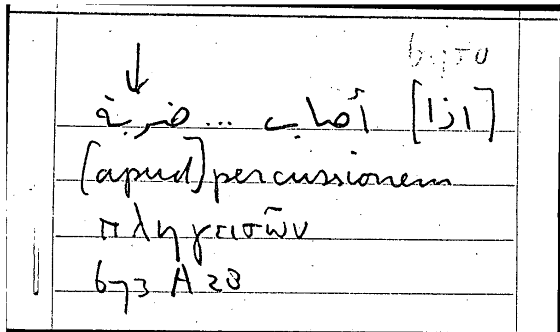 [اذا] أصاب ... ضربة
[apud] percussionem
πληγεισῶν
673 A 28